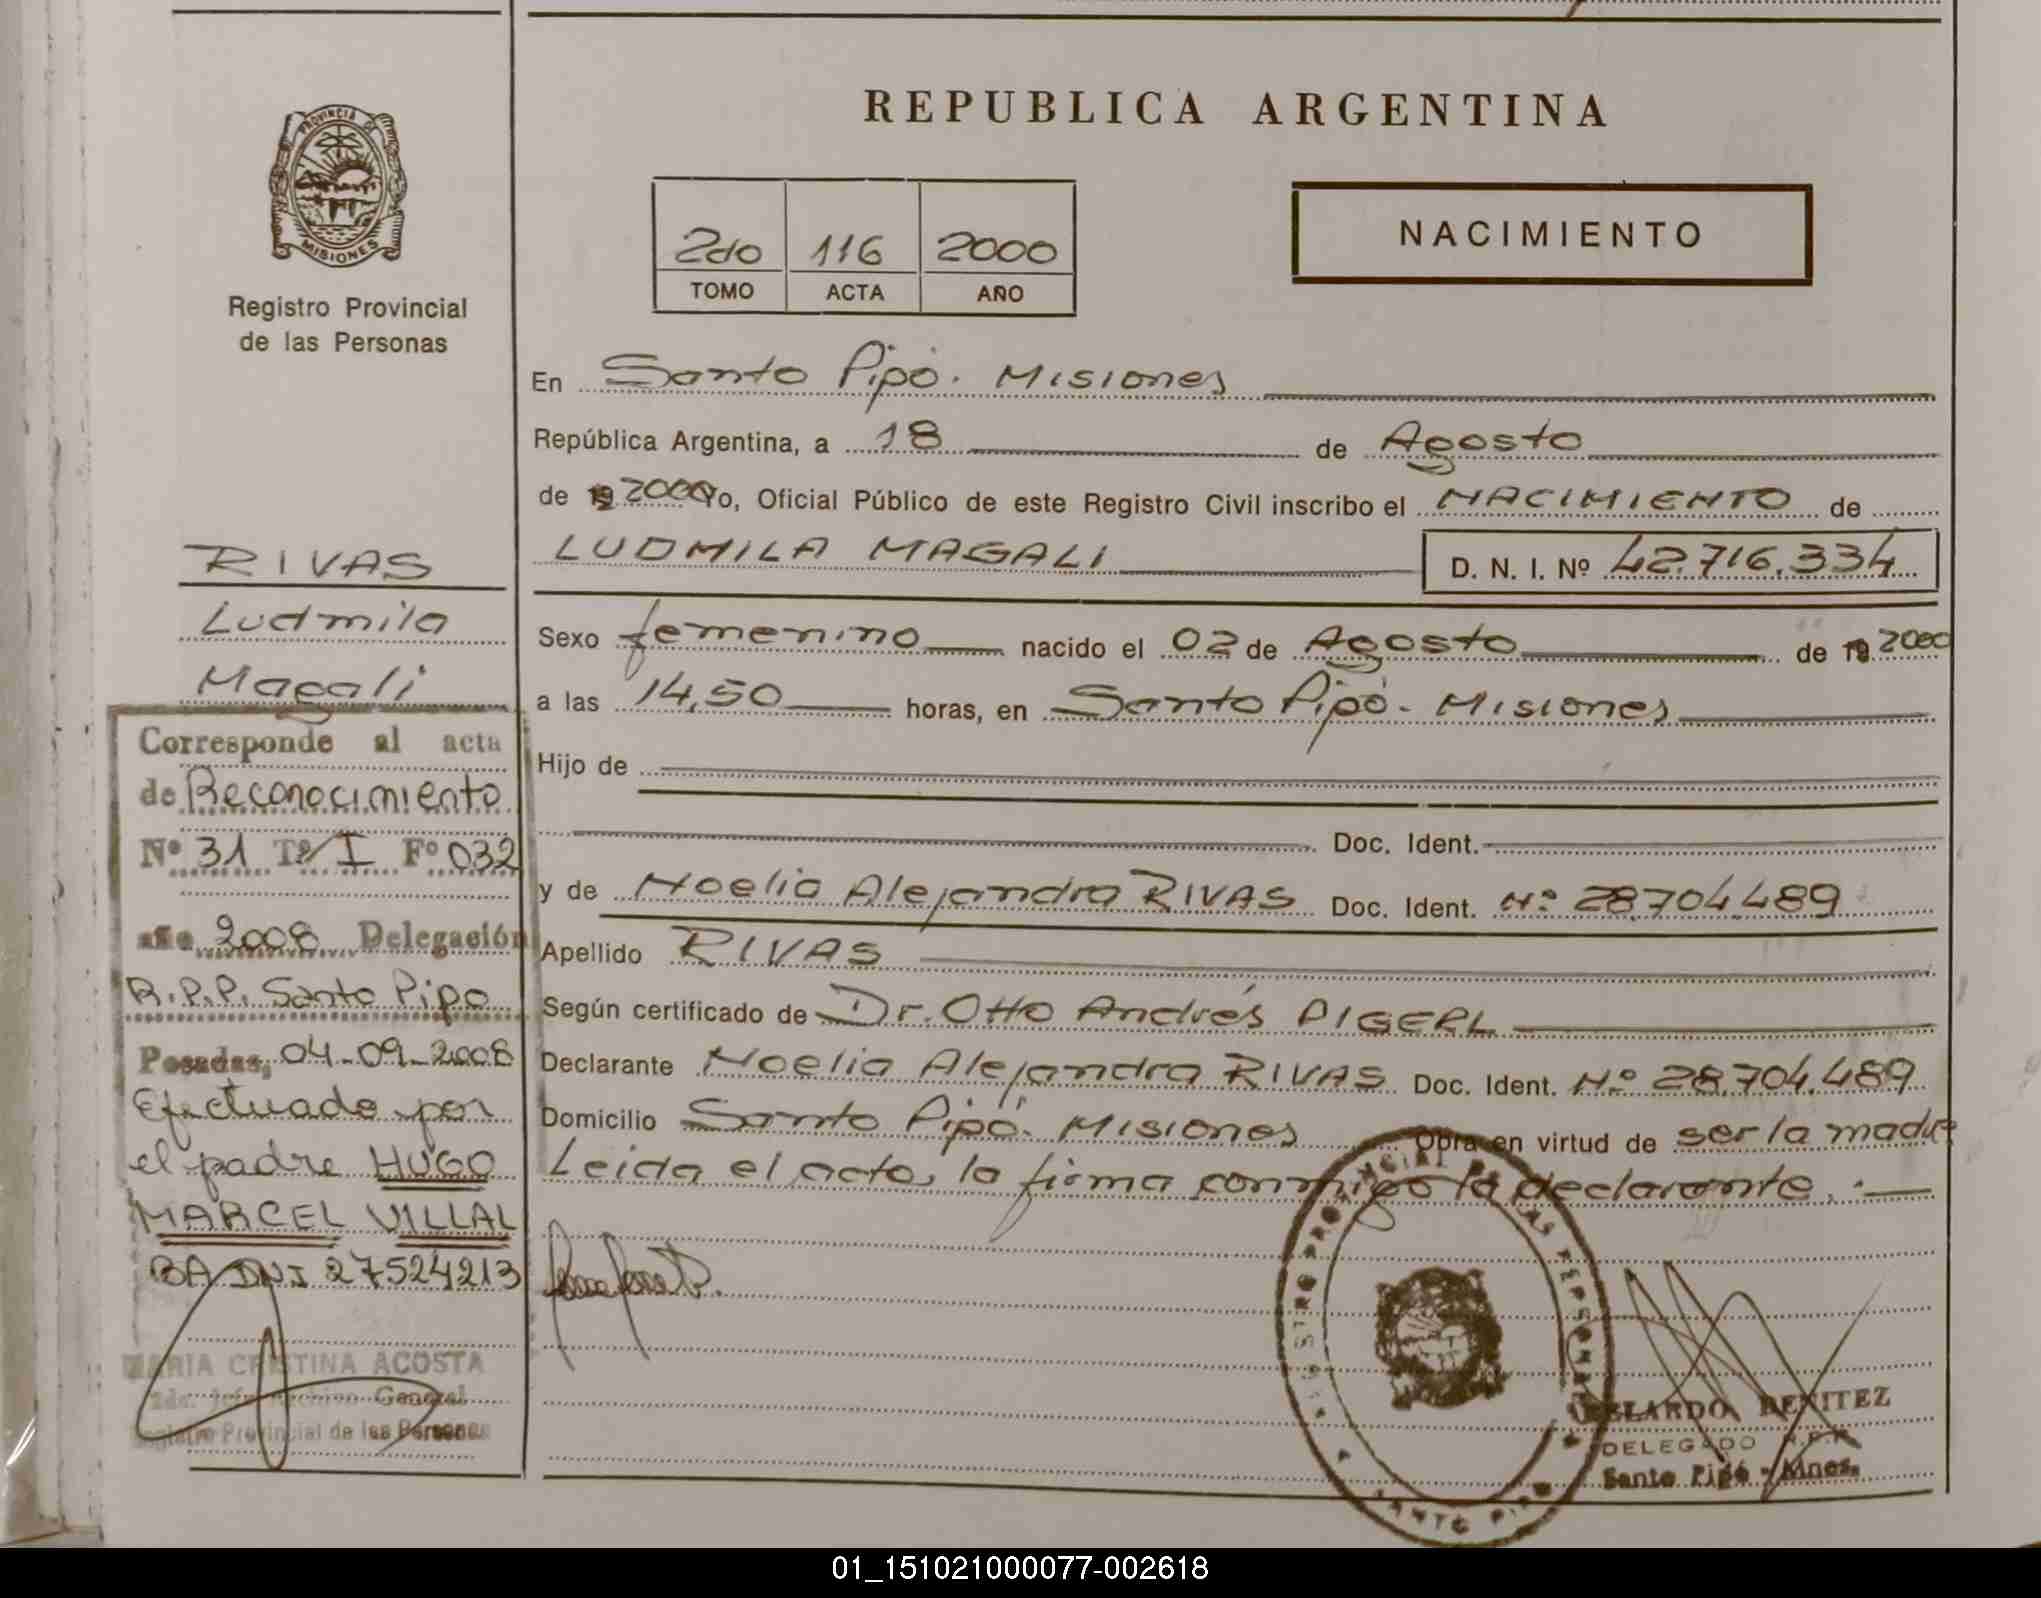 PROVINCIA DE
MISIONES
Registro Provincial
de las Personas
RIVAS
Ludmila
Magali
Corresponde al acta
de Reconocimiento
Nº 31 Tº I Fº 032
año 2008 Delegación
R.P.P. Santo Pipo
Posadas, 04-09-2008
Efectuado por
el padre HUGO
MARCEL VILLAL
BA DNI 27524213
MARIA CRISTINA ACOSTA
2da. Jefe Archivo General
Registro Provincial de las Personas
REPUBLICA ARGENTINA
2do 116 2000
TOMO ACTA AÑO
NACIMIENTO
En Santo Pipó. Misiones
República Argentina, a 18 de Agosto
de 19 2000 Yo, Oficial Público de este Registro Civil inscribo el NACIMIENTO de
LUDMILA MAGALI D. N. I. Nº 42.716.334
Sexo femenino nacido el 02 de Agosto de 19 2000
a las 14,50 horas, en Santo Pipó. Misiones
Hijo de
Doc. Ident.
y de Noelia Alejandra RIVAS Doc. Ident. Nº 28.704.489
Apellido RIVAS
Según certificado de Dr. Otto Andrés PIGERL
Declarante Noelia Alejandra RIVAS Doc. Ident. Nº 28.704.489
Domicilio Santo Pipó. Misiones Obra en virtud de ser la madre
Leida el acta, la firma conmigo la declarante.
REGISTRO PROVINCIAL DE LAS PERSONAS
SANTO PIPO
BENITEZ
DELEGADO R.P.P.
Santo Pipó - Mnes.
01_151021000077-002618